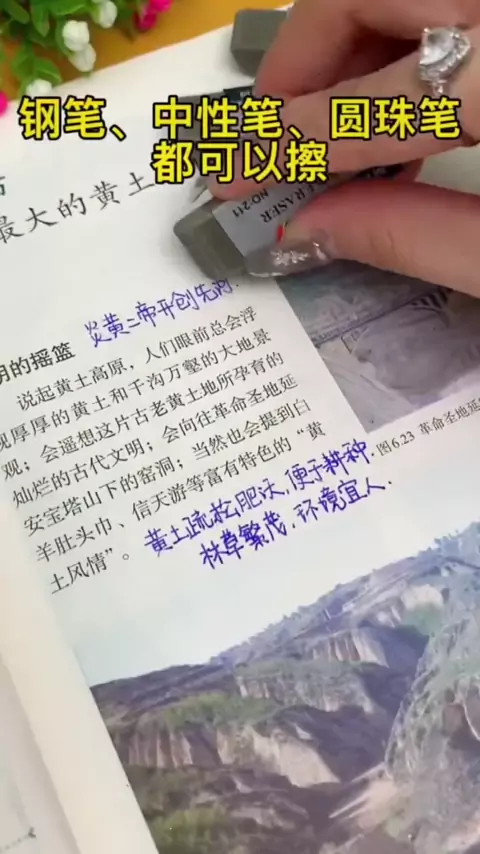 钢笔、中性笔、圆珠笔
都可以擦
ERASER
NO:211
最大的黄土
炎黄二帝开创先河.
明的摇篮
说起黄土高原，人们眼前总会浮
现厚厚的黄土和千沟万壑的大地景
观；会遥想这片古老黄土地所孕育的
灿烂的古代文明；会向往革命圣地延
安宝塔山下的窑洞；当然也会提到白
羊肚头巾、信天游等富有特色的“黄
土风情”。
黄土疏松肥沃,便于耕种.
林草繁茂,环境宜人.
图6.23 革命圣地延